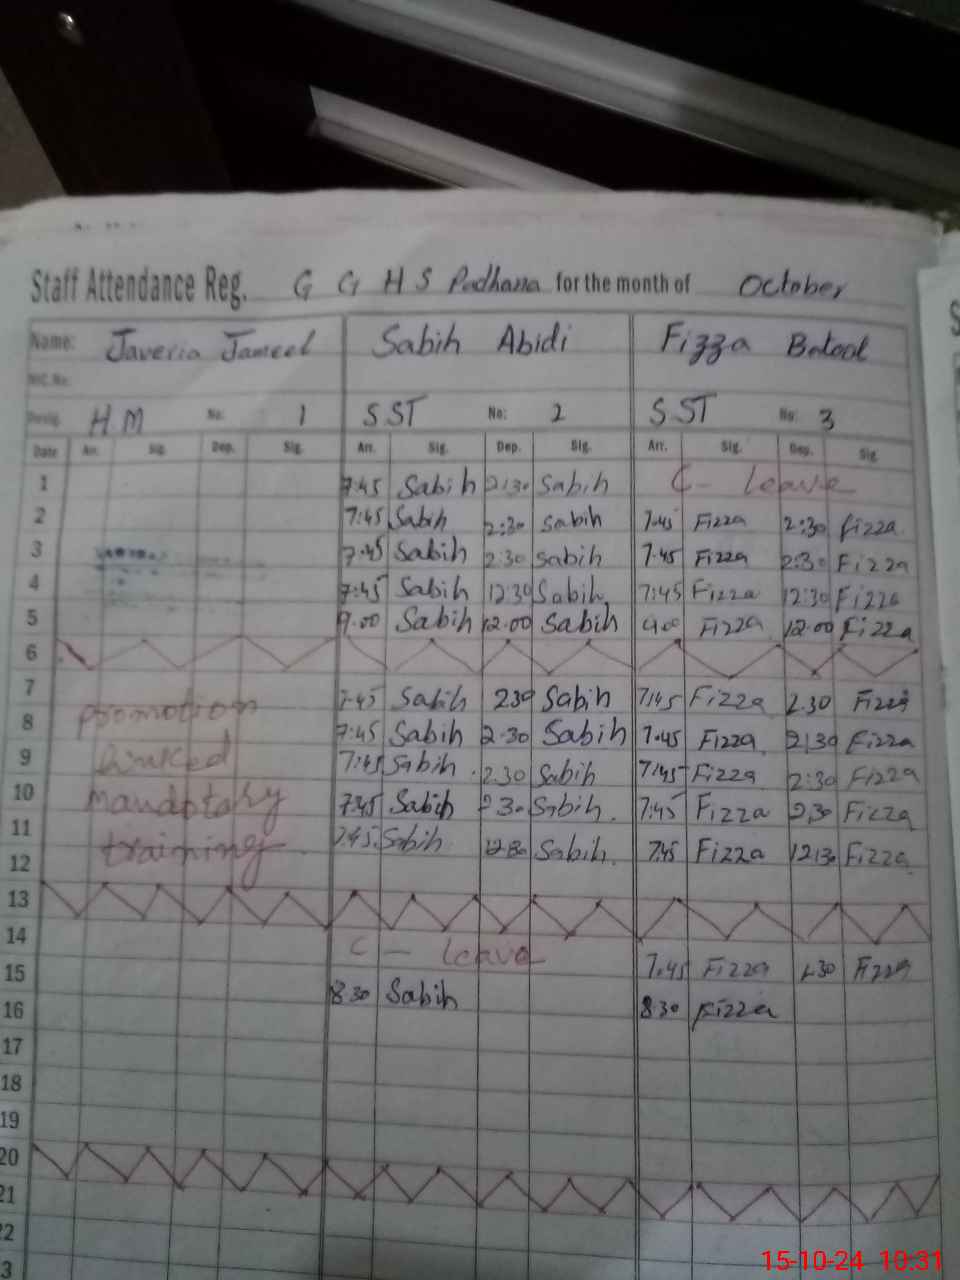 Staff Attendance Reg. G G H S Padhana for the month of October
Name: Javeria Jameel Sabih Abidi Fizza Batool
NIC.No:
Desig. H M No: 1 SST No: 2 SST No: 3
Date Arr. Sig. Dep. Sig. Arr. Sig. Dep. Sig. Arr. Sig. Dep. Sig
1 7:45 Sabih 2:30 Sabih C- leave
2 7:45 Sabih 2:30 Sabih 7:45 Fizza 2:30 fizza
3 7:45 Sabih 2:30 Sabih 7:45 Fizza 2:30 Fizza
4 7:45 Sabih 12:30 Sabih 7:45 Fizza 12:30 Fizza
5 9.00 Sabih 12.00 Sabih 9.00 Fizza 12.00 Fizza
6
7 7:45 Sabih 2:30 Sabih 7:45 Fizza 2.30 Fizza
8 promotion 7:45 Sabih 2.30 Sabih 7.45 Fizza 2:30 Fizza
9 linked 7:45 Sabih 2.30 Sabih 7:45 Fizza 2:30 Fizza
10 mandatory 7:45 Sabih 2:30 Sabih. 7:45 Fizza 2:30 Fizza
11 training 7.45 Sabih 12:30 Sabih. 7:45 Fizza 12:30 Fizza
12
13
14 C - leave 7.45 Fizza 1.30 Fizza
15 8:30 Sabih 8:30 Fizza
16
17
18
19
20
21
22
3
15-10-24 10:31